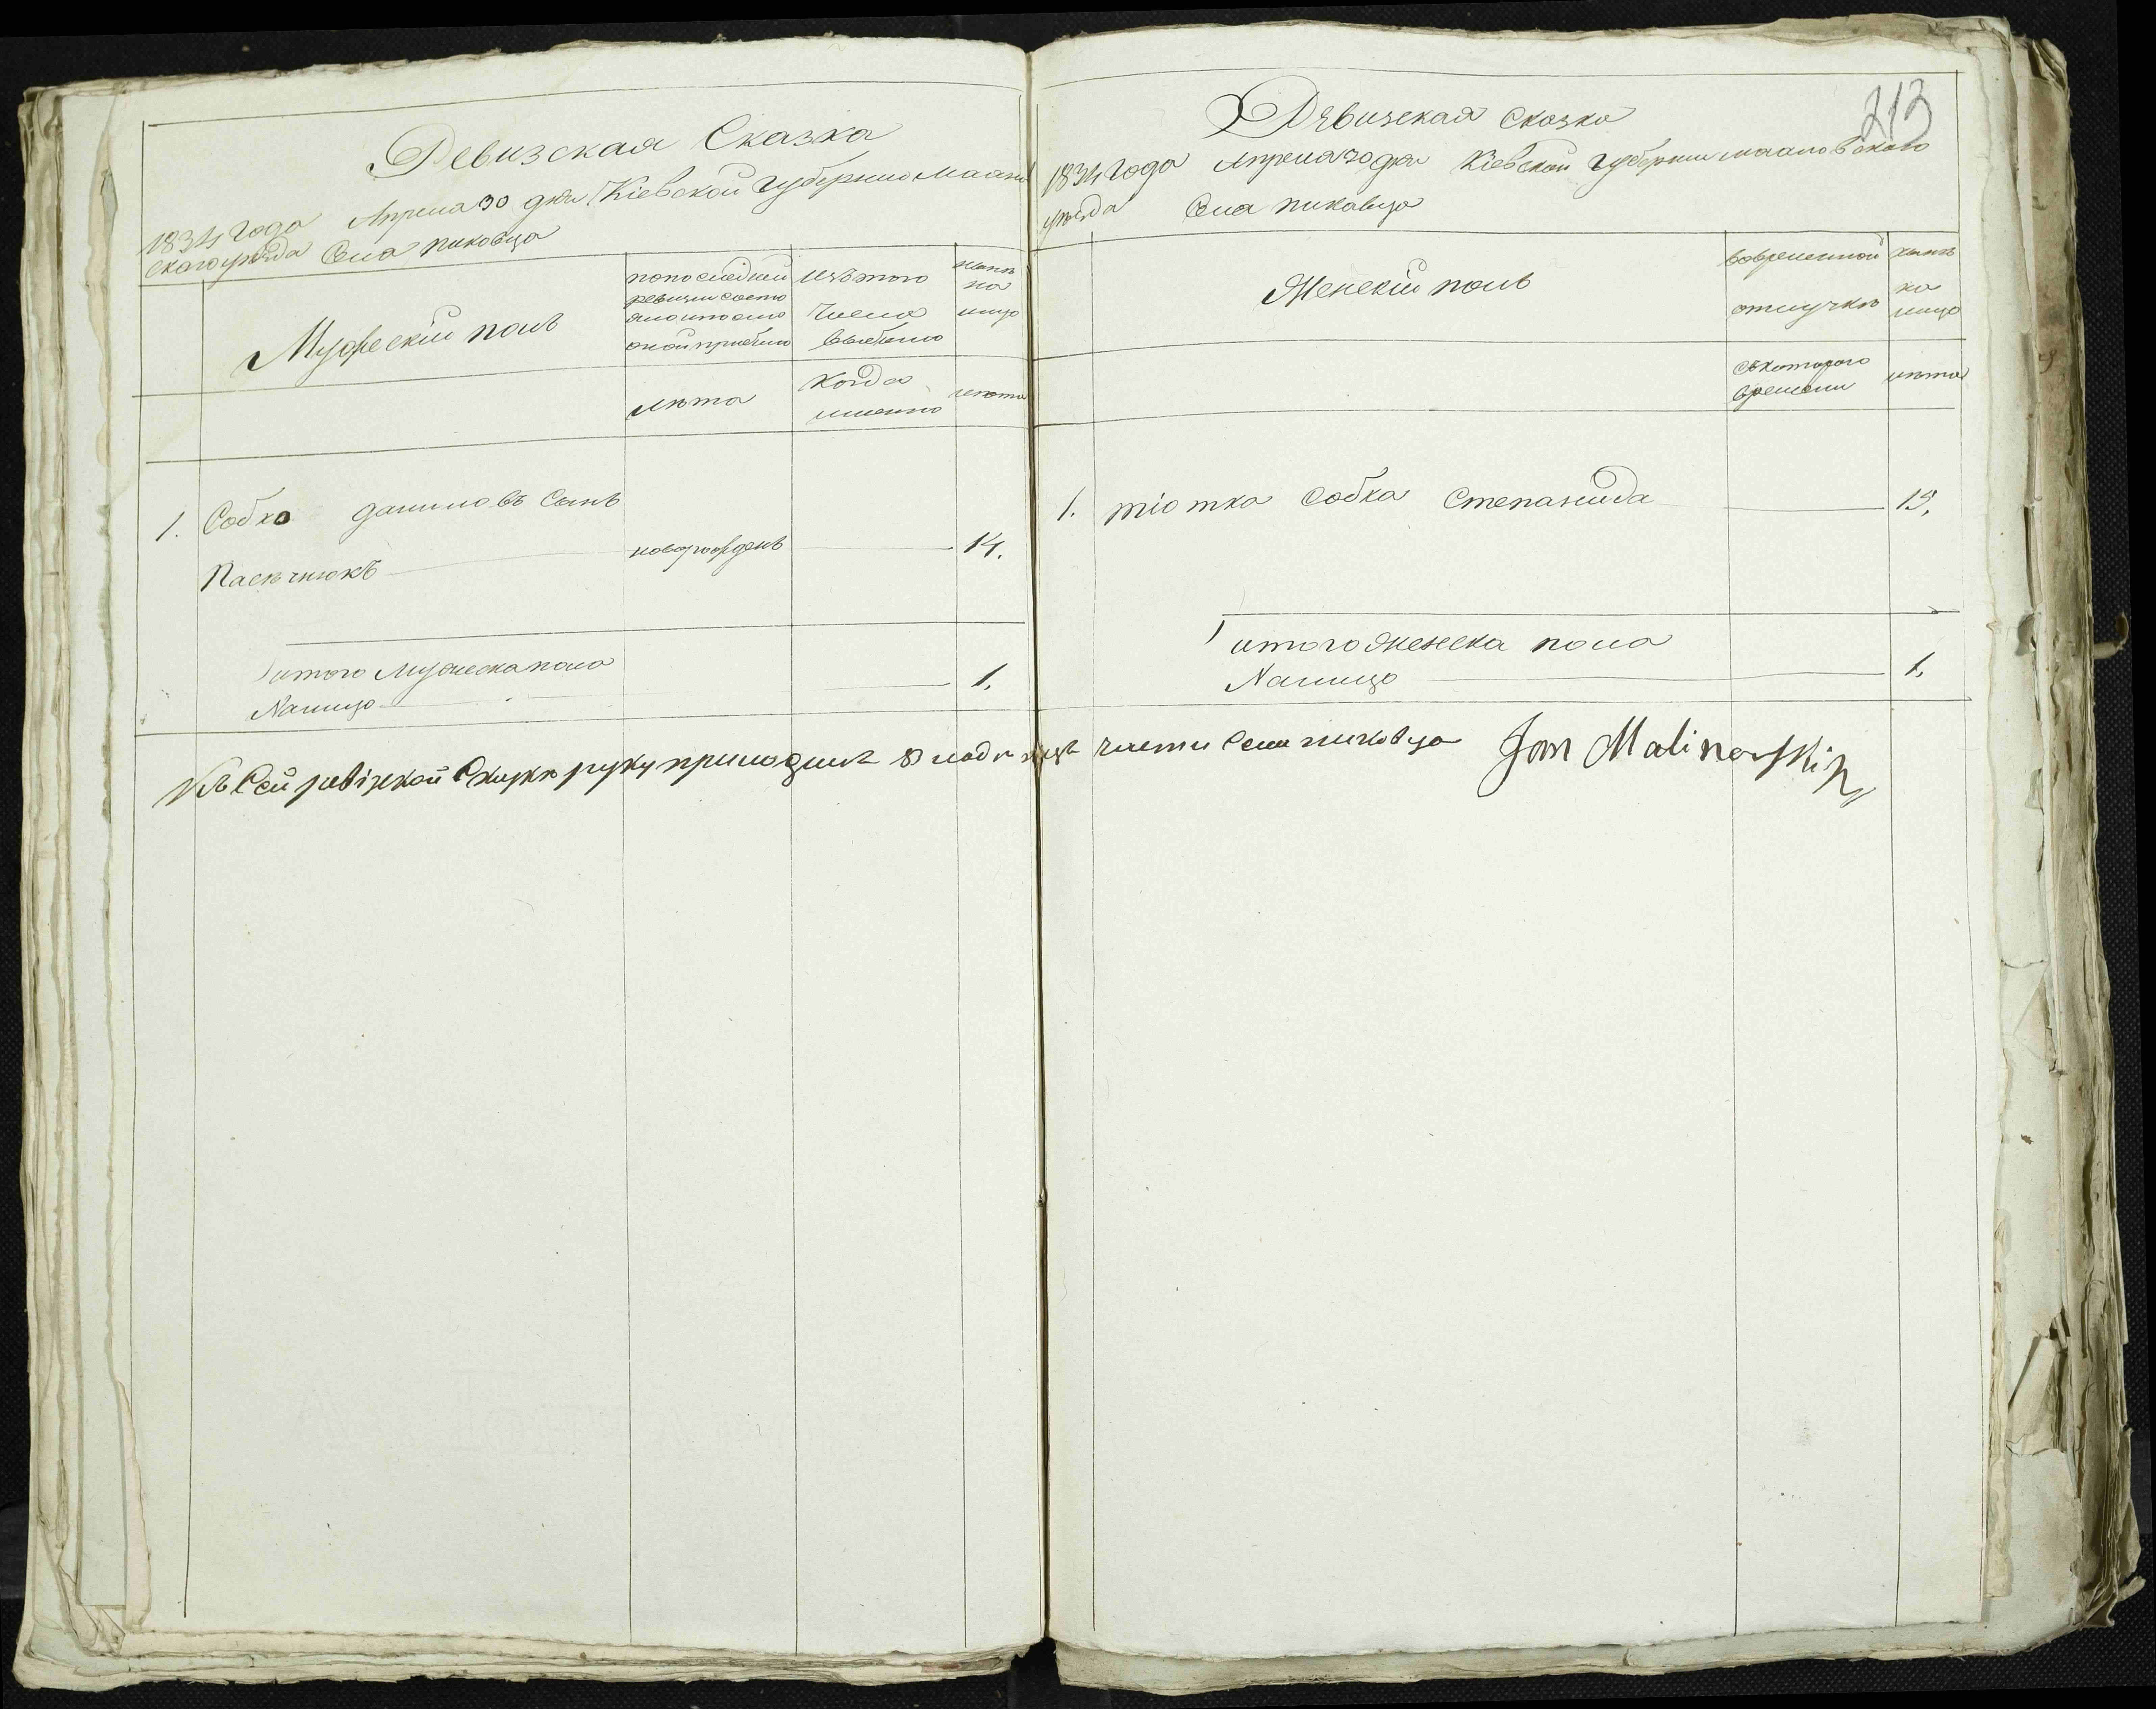 Ревизская Сказка
1834 года Апреля 30 дня Кіевской губерніи Махнов
скаго уѣзда Села пиковца
Мужескій полъ
попоследней
ревизіи состо
яло ипосле
оной прибыло
лѣта
Изътого
Числа
выбыло
Когда
именно
нынѣ
на
лицо
лѣта
1. Собко даниловъ Сынъ
Пасѣчнюкъ
новорожденъ 14.
итого Мужеска пола
Налицо 1.
213
Рѣвизская сказка
1834 года Апреля 30 дня Кіевской губерніи махновскаго
уѣзда Села пиковца
Женскій полъ
вовременной
отлучкѣ
съкоторого
времени
нынѣ
на
лицо
лѣта
1. тіотка Собка Степанида 19.
итого Женска пола
Налицо 1.
Къ Сей ревізской Сказкѣ руку приложилъ части Села пиковца Jan Malinowski